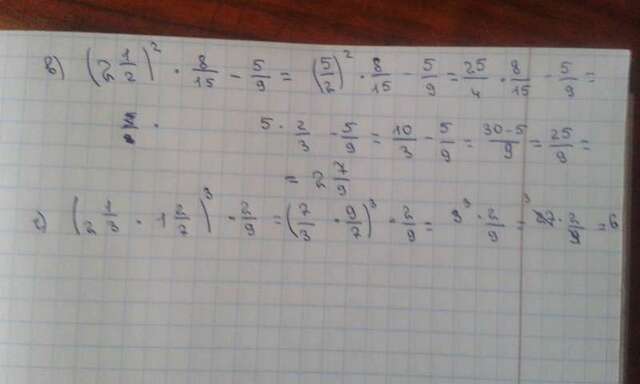 в) (2 1/2)² · 8/15 - 5/9 = (5/2)² · 8/15 - 5/9 = 25/4 · 8/15 - 5/9 =
5 · 2/3 - 5/9 = 10/3 - 5/9 = 30-5/9 = 25/9 =
= 2 7/9
г) (2 1/3 · 1 2/7)³ · 2/9 = (7/3 · 9/7)³ · 2/9 = 3³ · 2/9 = ³27 · 2/9 = 6